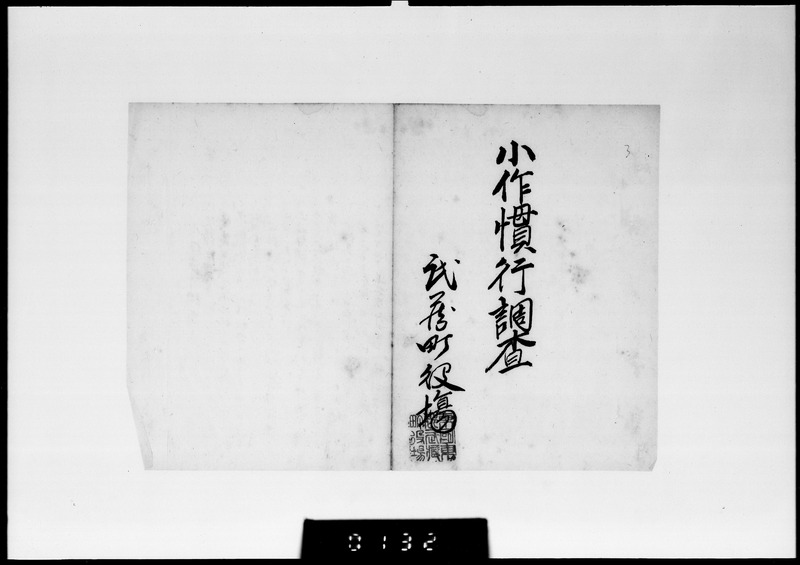 3
小作慣行調査
武蔵町役場
0132